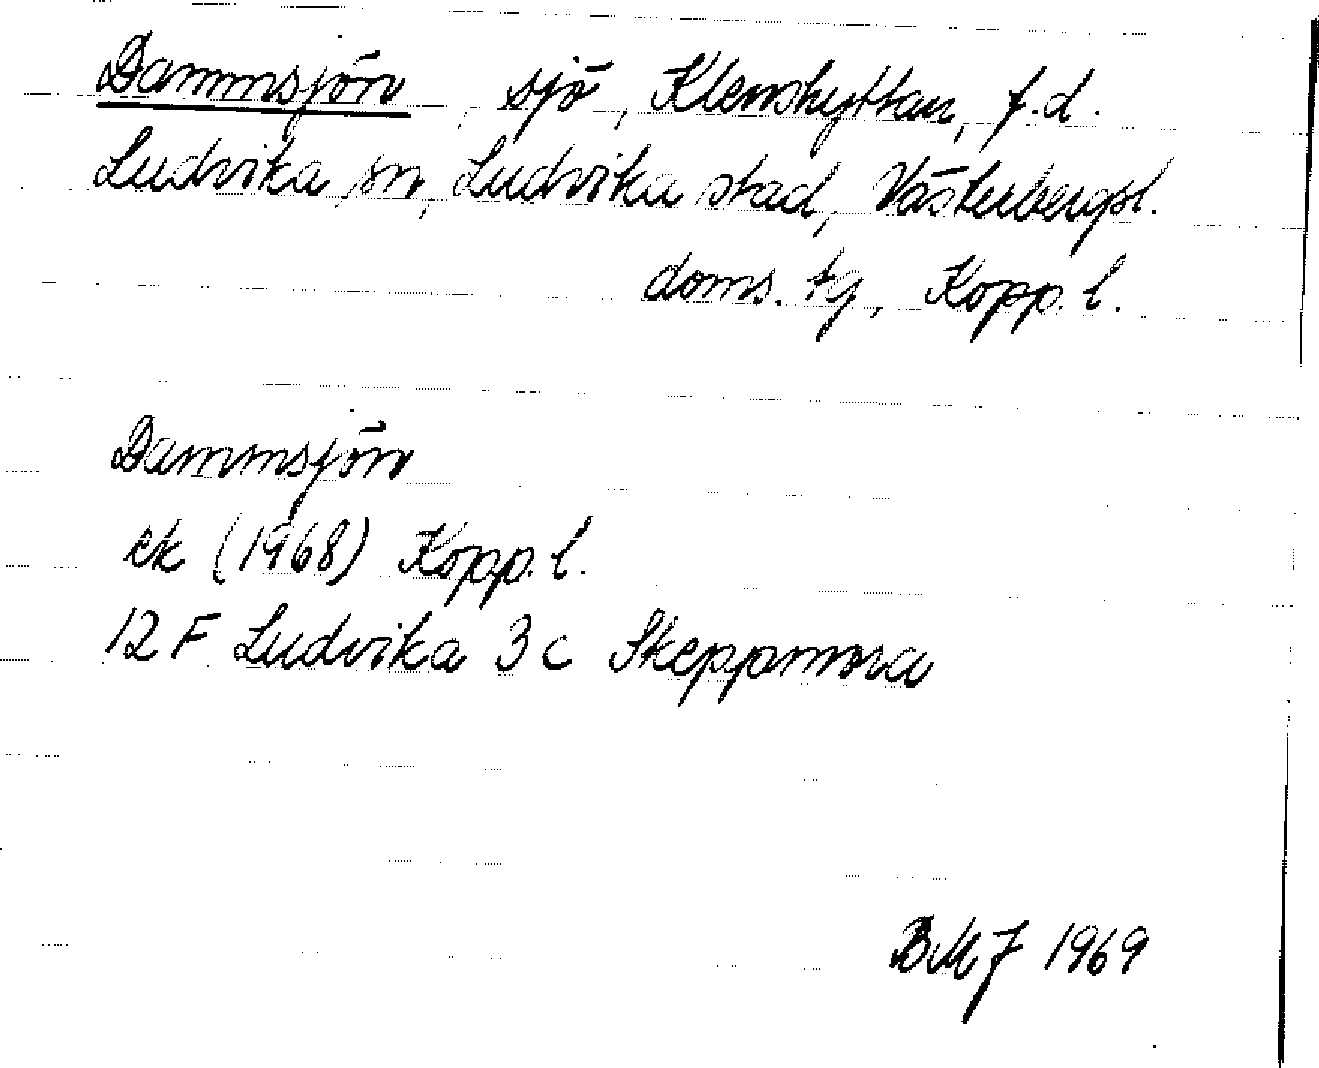 Dammsjön, sjö, Klenshyttan, f.d.
Ludvika sn, Ludvika stad, Västerbergsl.
doms. tg, Kopp. l.
Dammsjön
ek (1968) Kopp. l.
12 F Ludvika 3 c Skeppmora
BMJ 1969